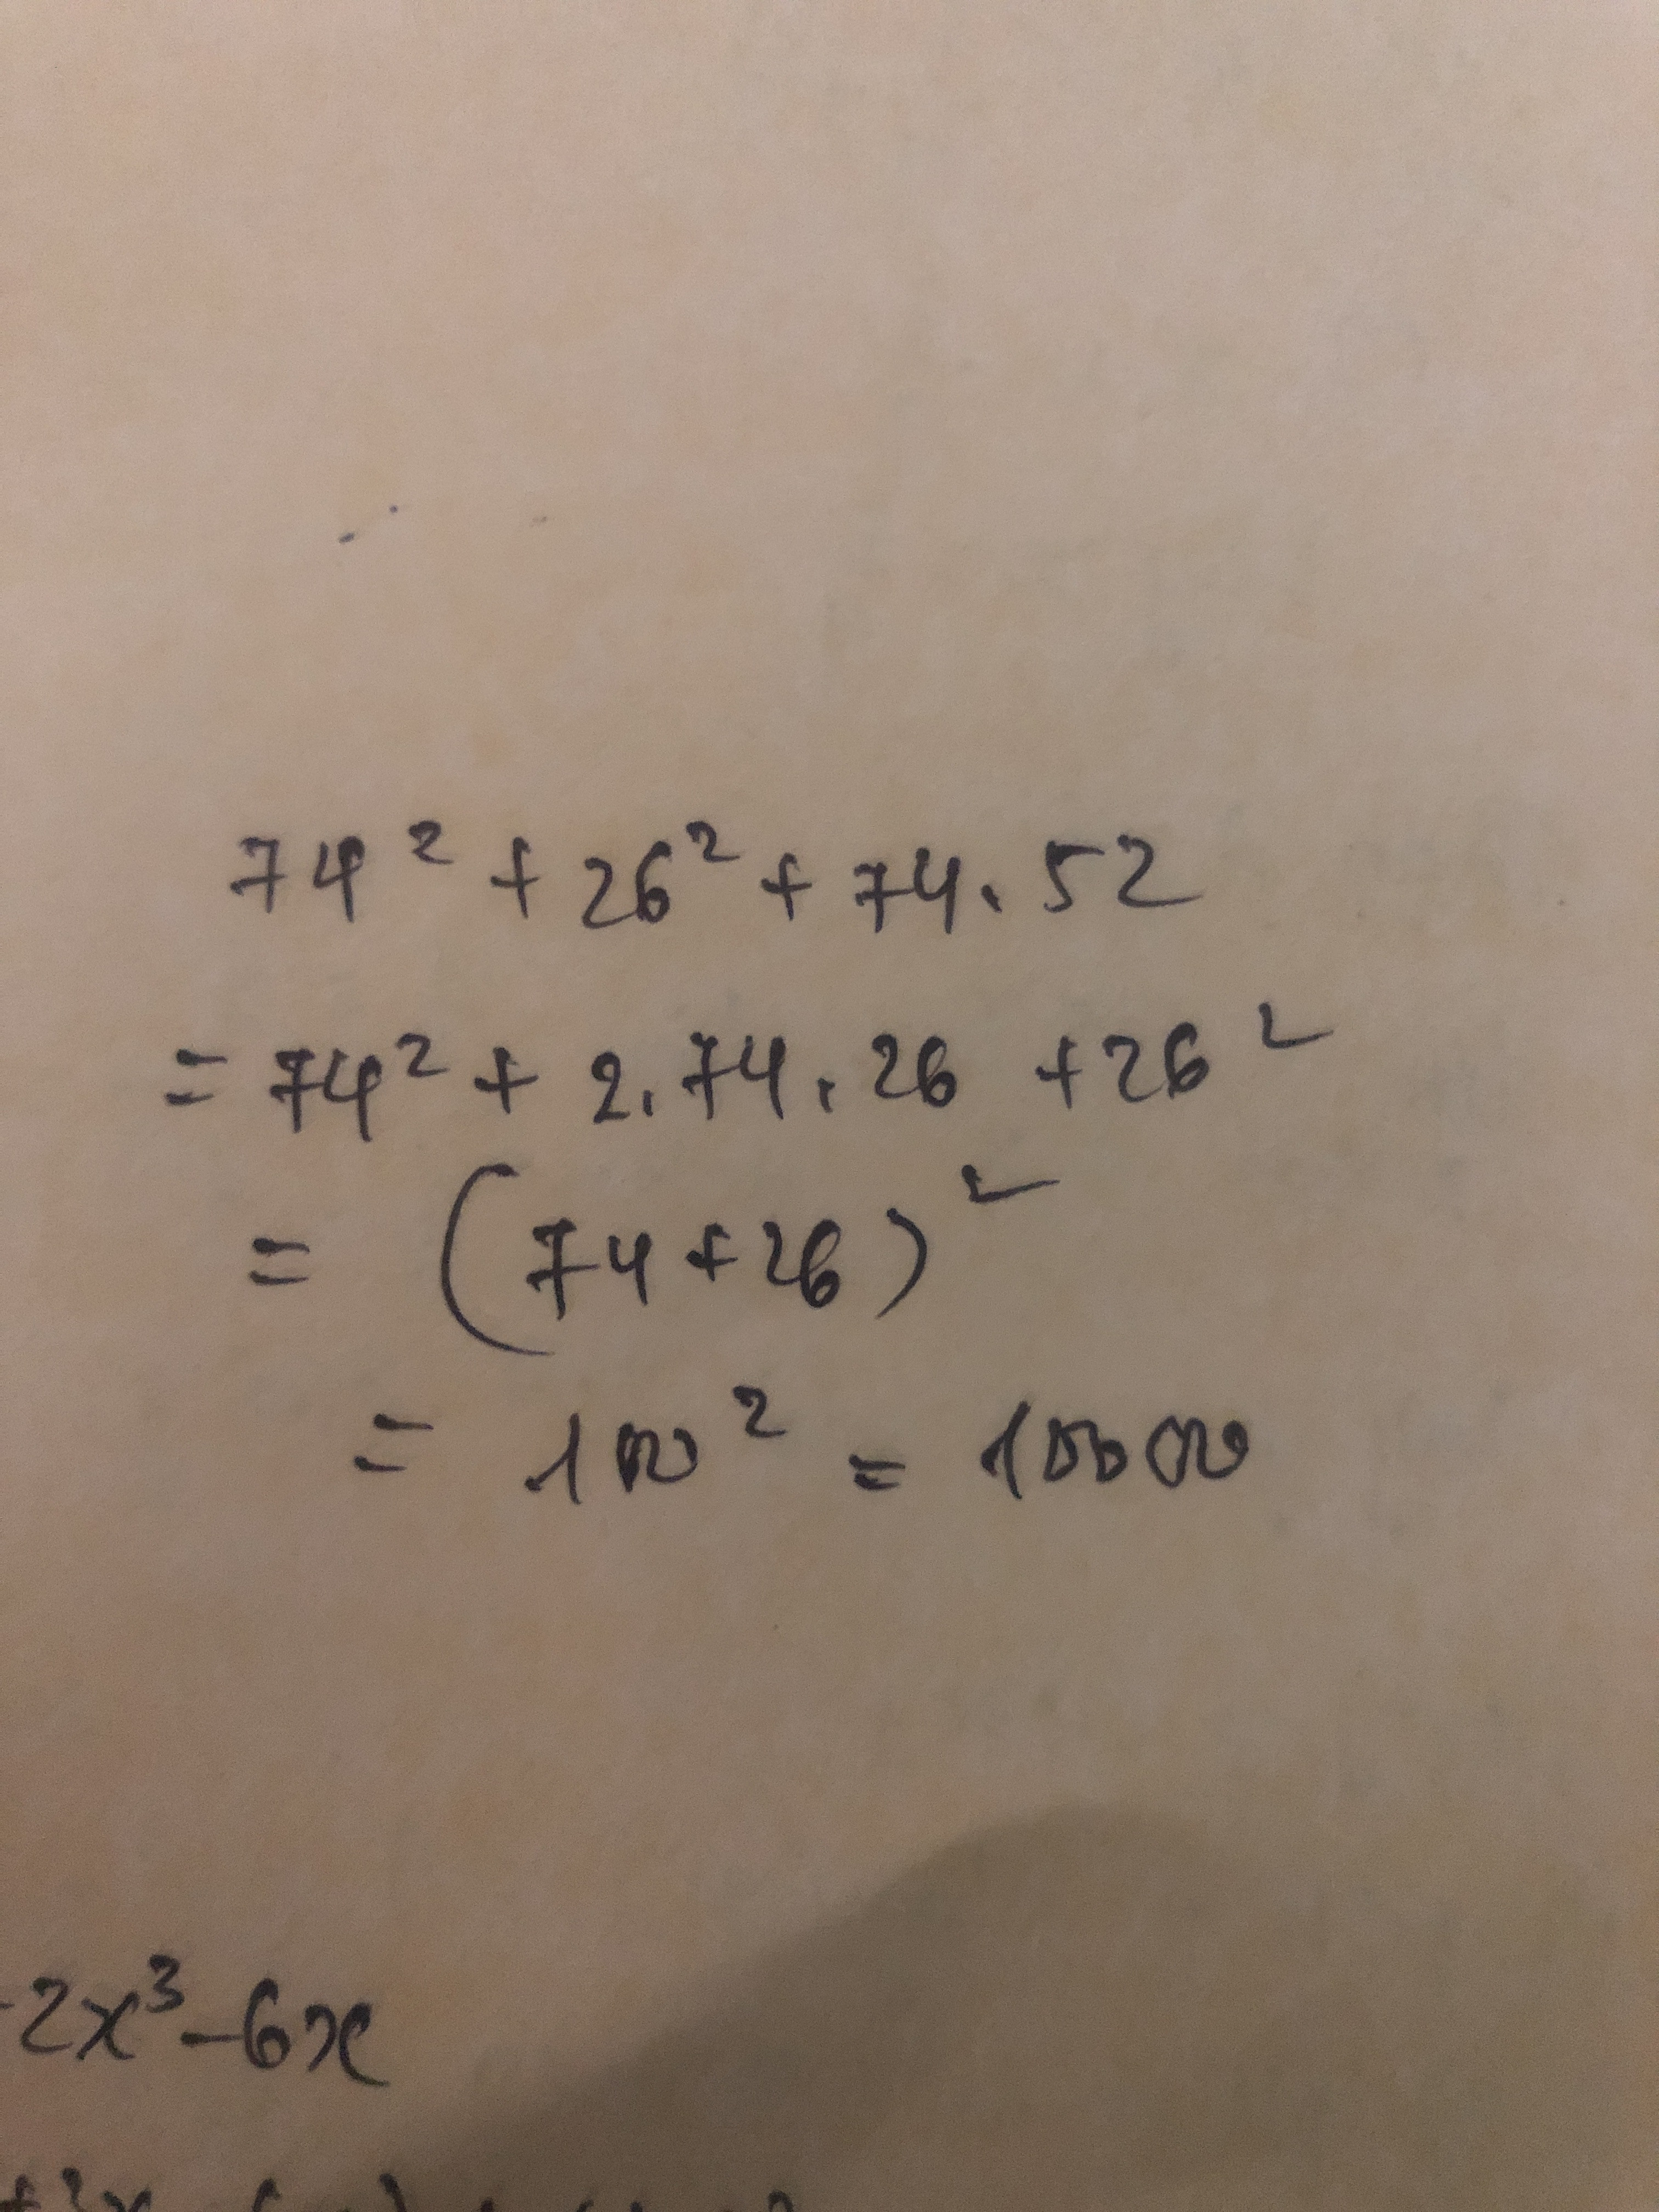 74² + 26² + 74.52
= 74² + 2.74.26 + 26²
= (74+26)²
= 100² = 10000
-2x³-6x